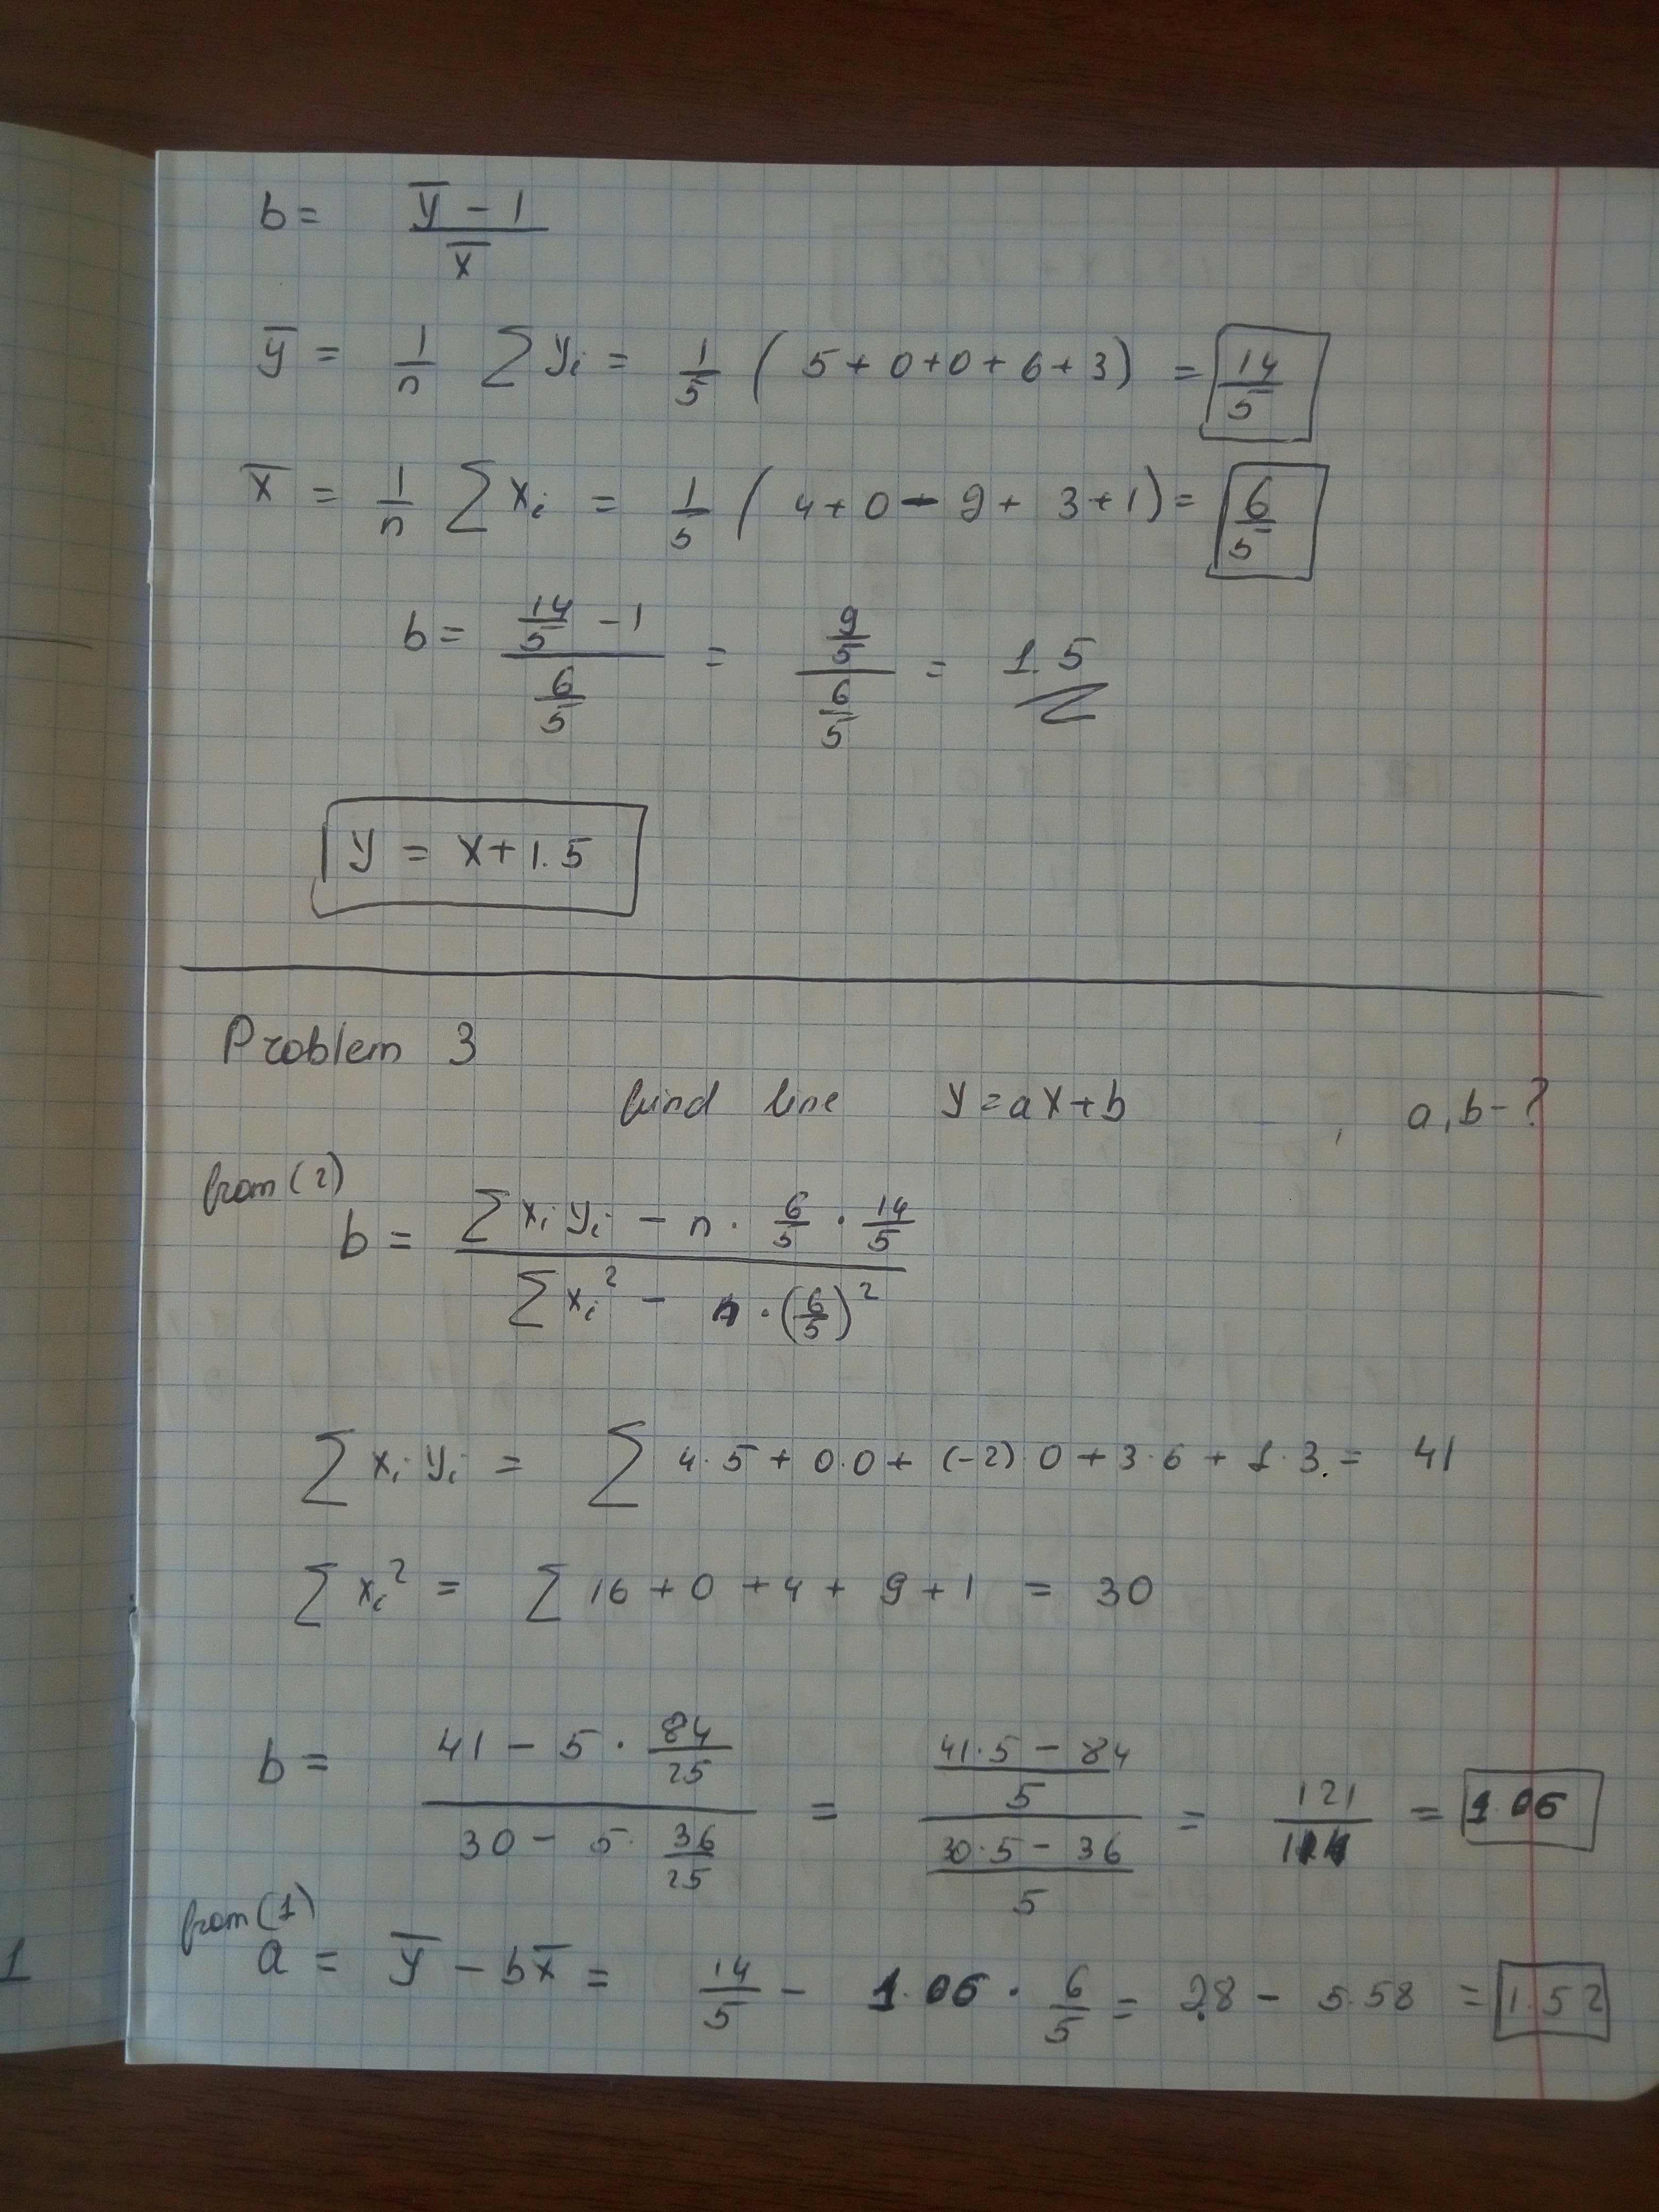 b = (y̅ - 1) / x̅
y̅ = 1/n ∑ yᵢ = 1/5 ( 5 + 0 + 0 + 6 + 3 ) = 14/5
x̅ = 1/n ∑ xᵢ = 1/5 ( 4 + 0 - 2 + 3 + 1 ) = 6/5
b = (14/5 - 1) / (6/5) = (9/5) / (6/5) = 1.5
y = x + 1.5
Problem 3
find line y = ax + b , a, b - ?
from (2)
b = (∑ xᵢ yᵢ - n · 6/5 · 14/5) / (∑ xᵢ² - n · (6/5)²)
∑ xᵢ yᵢ = ∑ 4·5 + 0·0 + (-2)·0 + 3·6 + 1·3 = 41
∑ xᵢ² = ∑ 16 + 0 + 4 + 9 + 1 = 30
b = (41 - 5 · 84/25) / (30 - 5 · 36/25) = ((41·5 - 84)/5) / ((30·5 - 36)/5) = 121/114 = 1.06
from (1)
a = y̅ - bx̅ = 14/5 - 1.06 · 6/5 = 2.8 - 5.58 = 1.52
1